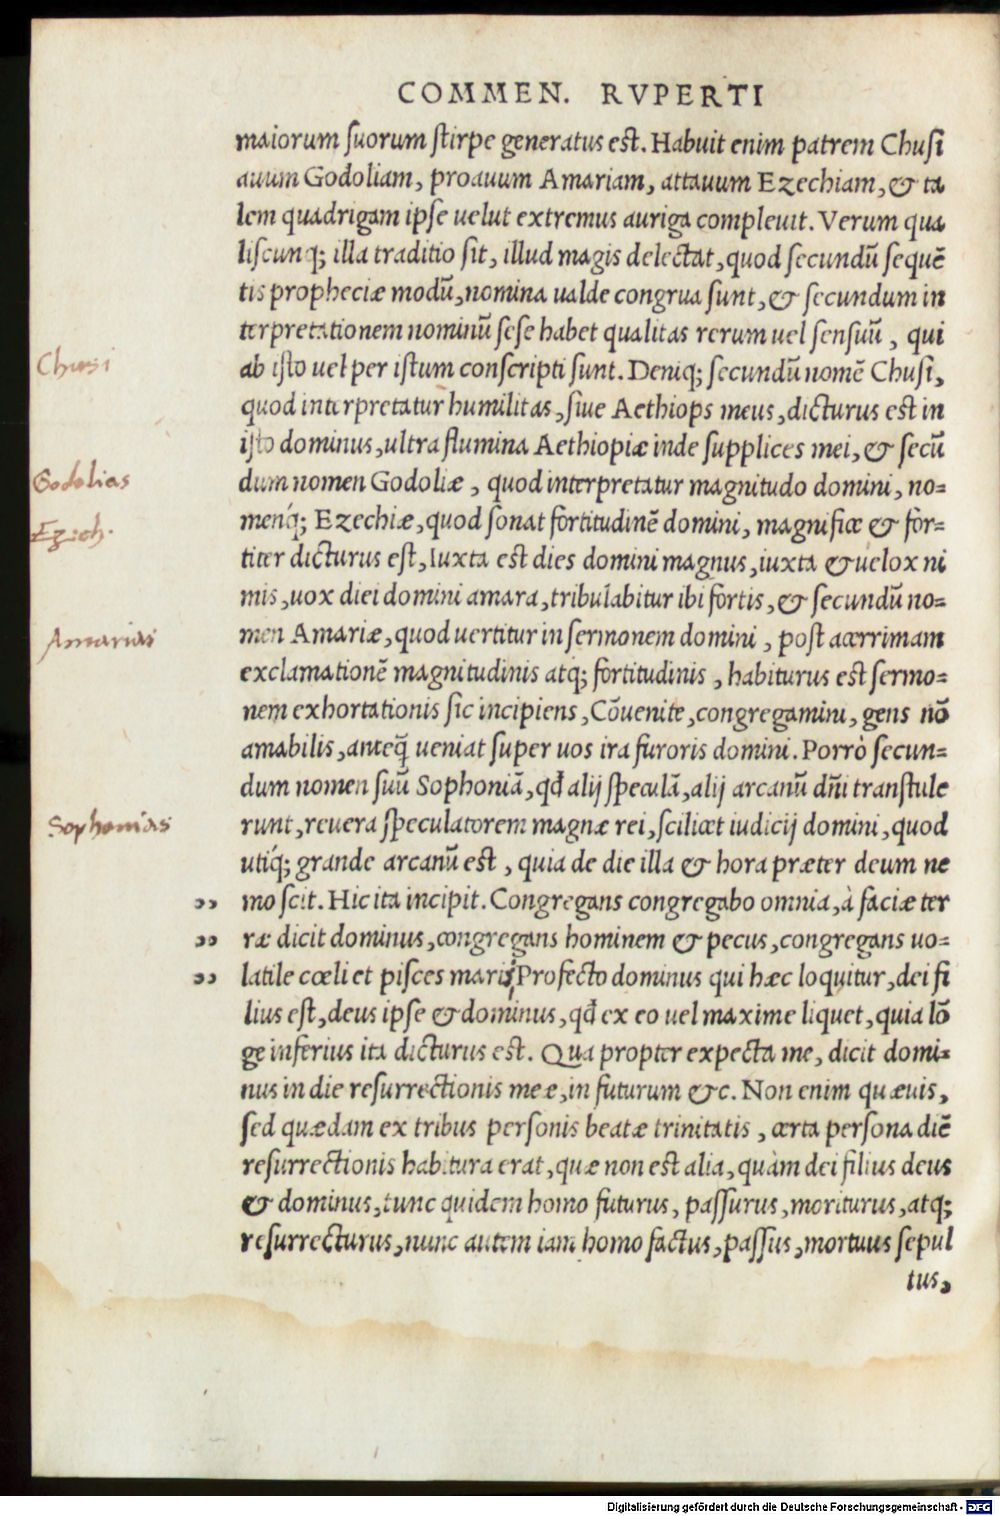 COMMEN. RVPERTI
maiorum suorum stirpe generatus est. Habuit enim patrem Chusi
auum Godoliam, proauum Amariam, attauum Ezechiam, & ta
lem quadrigam ipse uelut extremus auriga compleuit. Verum qua
liscunq; illa traditio sit, illud magis delectat, quod secundũ sequẽ
tis propheciæ modũ, nomina ualde congrua sunt, & secundum in
terpretationem nominũ sese habet qualitas rerum uel sensuũ, qui
Chusi
ab isto uel per istum conscripti sunt. Deniq; secundũ nomẽ Chusi,
quod interpretatur humilitas, siue Aethiops meus, dicturus est in
isto dominus, ultra flumina Aethiopiæ inde supplices mei, & secũ
Godolias
dum nomen Godoliæ, quod interpretatur magnitudo domini, no=
Ezech.
menq́; Ezechiæ, quod sonat fortitudinẽ domini, magnifice & for=
titer dicturus est, Iuxta est dies domini magnus, iuxta & uelox ni
mis, uox diei domini amara, tribulabitur ibi fortis, & secundũ no=
Amarias
men Amariæ, quod uertitur in sermonem domini, post acerrimam
exclamationẽ magnitudinis atq; fortitudinis, habiturus est sermo=
nem exhortationis sic incipiens, Cõuenite, congregamini, gens nõ
amabilis, anteq̃ ueniat super uos ira furoris domini. Porrò secun=
dum nomen suũ Sophoniã, qđ alij speculã, alij arcanũ dñi transtule
Sophonias
runt, reuera speculatorem magnæ rei, scilicet iudicij domini, quod
utiq́; grande arcanũ est, quia de die illa & hora præter deum ne
,, mo scit. Hic ita incipit. Congregans congregabo omnia, à facie ter
,, ræ dicit dominus, congregans hominem & pecus, congregans uo=
,, latile cœli et pisces maris. Profecto dominus qui hæc loquitur, dei fi
lius est, deus ipse & dominus, qđ ex eo uel maxime liquet, quia lõ
ge inferius ita dicturus est. Qua propter expecta me, dicit domi=
nus in die resurrectionis meæ, in futurum &c. Non enim quæuis,
sed quædam ex tribus personis beatæ trinitatis, certa persona diẽ
resurrectionis habitura erat, quæ non est alia, quàm dei filius deus
& dominus, tunc quidem homo futurus, passurus, moriturus, atq;
resurrecturus, nunc autem iam homo factus, passus, mortuus sepul
tus,
Digitalisierung gefördert durch die Deutsche Forschungsgemeinschaft - DFG